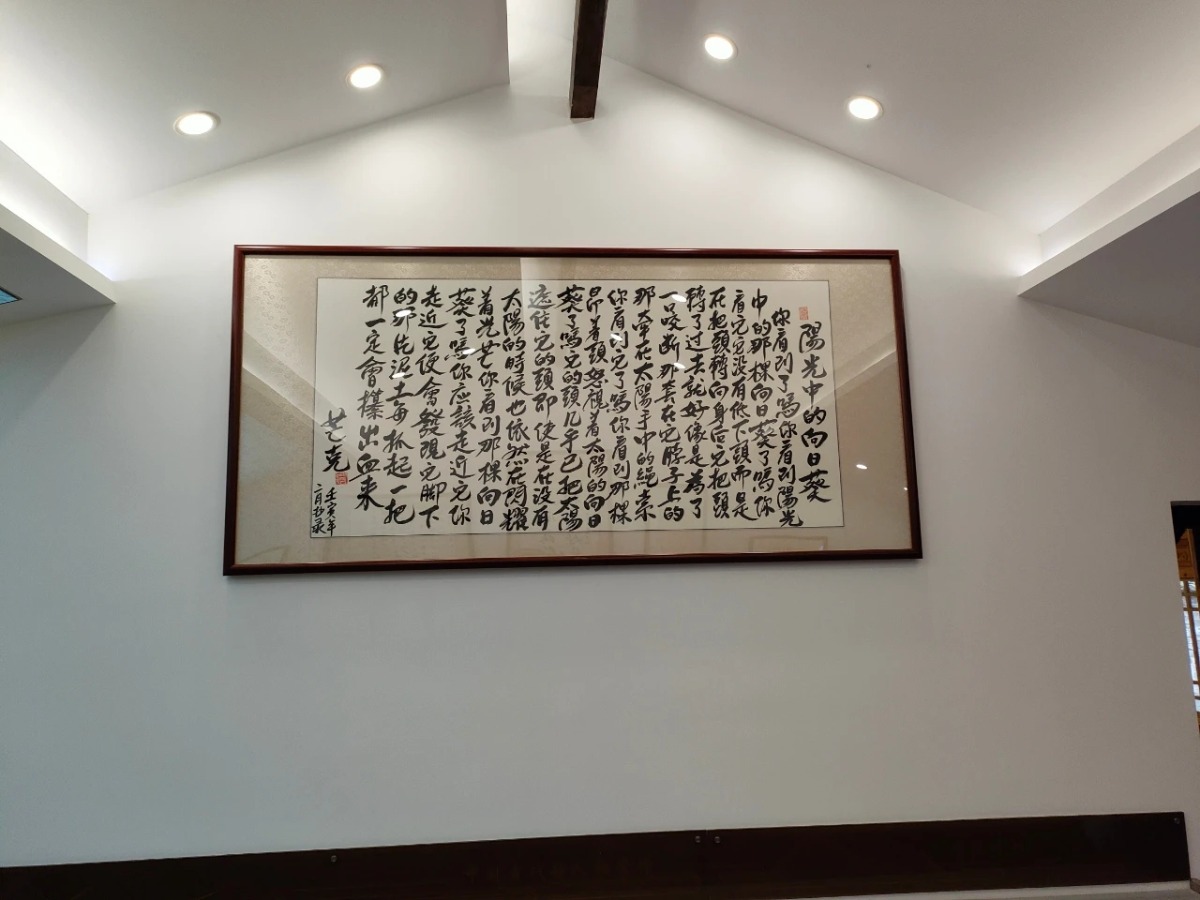 陽光中的向日葵
你看到了嗎你看到陽光
中的那棵向日葵了嗎你
看它它没有低下頭而是
在把頭轉向身后它把頭
轉了过去就好像是為了
一口咬断那套在它脖子上的
那牵在太陽手中的繩索
你看到它了嗎你看到那棵
昂着頭怒視着太陽的向日
葵了嗎它的頭几乎已把太陽
遮住它的頭即使是在没有
太陽的時候也依然在閃耀
着光芒你看到那棵向日
葵了嗎你应該走近它你
走近它便會發現它脚下
的那片泥土每抓起一把
都一定會攥出血来
芒克
壬寅年
二月抄录